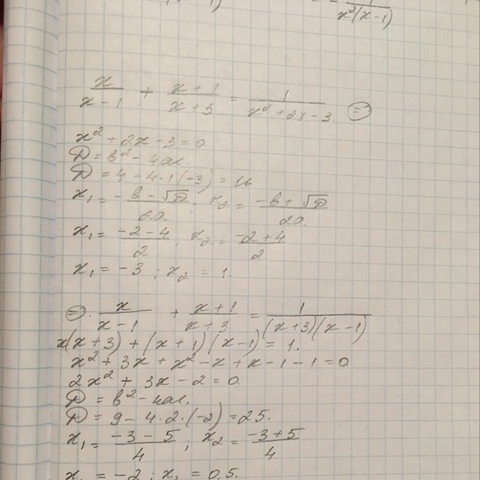 1/(x²(x-1))
x/(x-1) + (x+1)/(x+3) = 1/(x²+2x-3) ⊜
x² + 2x - 3 = 0.
D = b² - 4ac.
D = 4 - 4·1·(-3) = 16
x₁ = (-b-√D)/2a ; x₂ = (-b+√D)/2a.
x₁ = (-2-4)/2 ; x₂ = (-2+4)/2
x₁ = -3 ; x₂ = 1.
⊜ x/(x-1) + (x+1)/(x+3) = 1/((x+3)(x-1))
x(x+3) + (x+1)(x-1) = 1.
x² + 3x + x² - x + x - 1 - 1 = 0
2x² + 3x - 2 = 0.
D = b² - 4ac.
D = 9 - 4·2·(-2) = 25.
x₁ = (-3-5)/4 ; x₂ = (-3+5)/4
x₁ = -2 ; x₂ = 0,5.